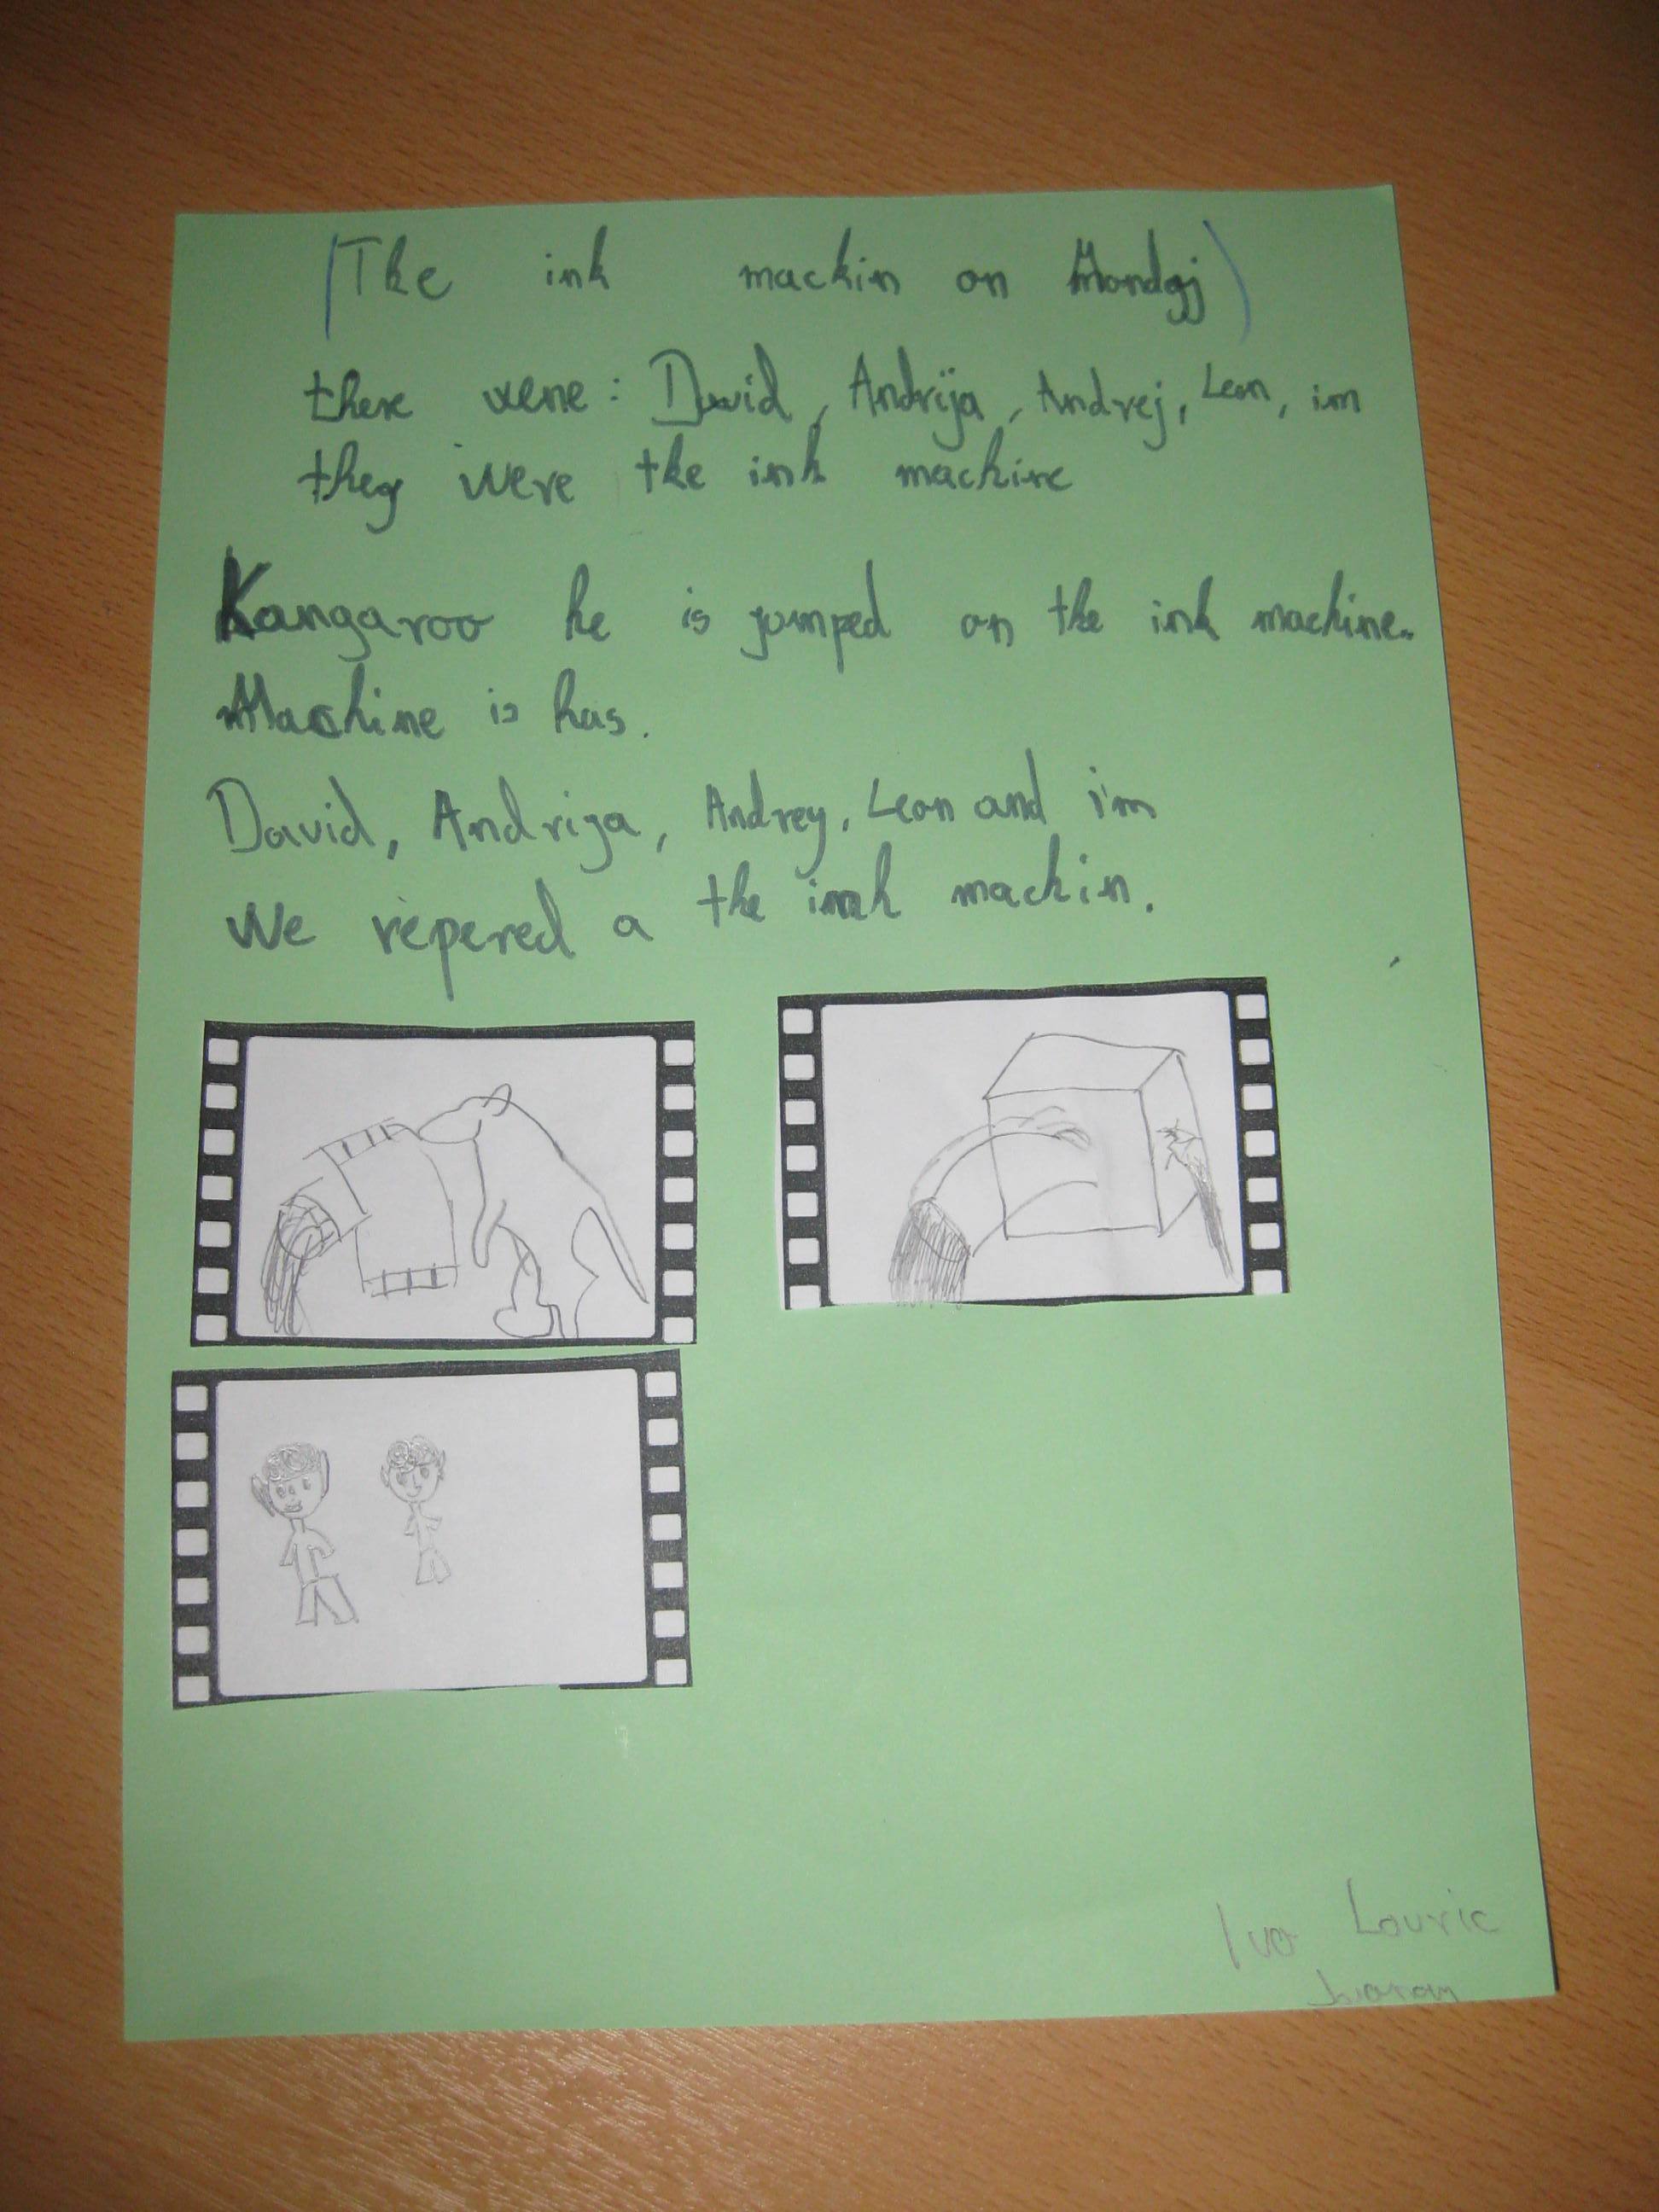 (The ink mackin on Mondaj)
there wene: David, Andrija, Andrej, Leon, im
they were the ink machine
Kangaroo he is jumped on the ink machine.
Machine is has.
David, Andrija, Andrey, Leon and i'm
We repered a the ink mackin.
Ivo Lovric